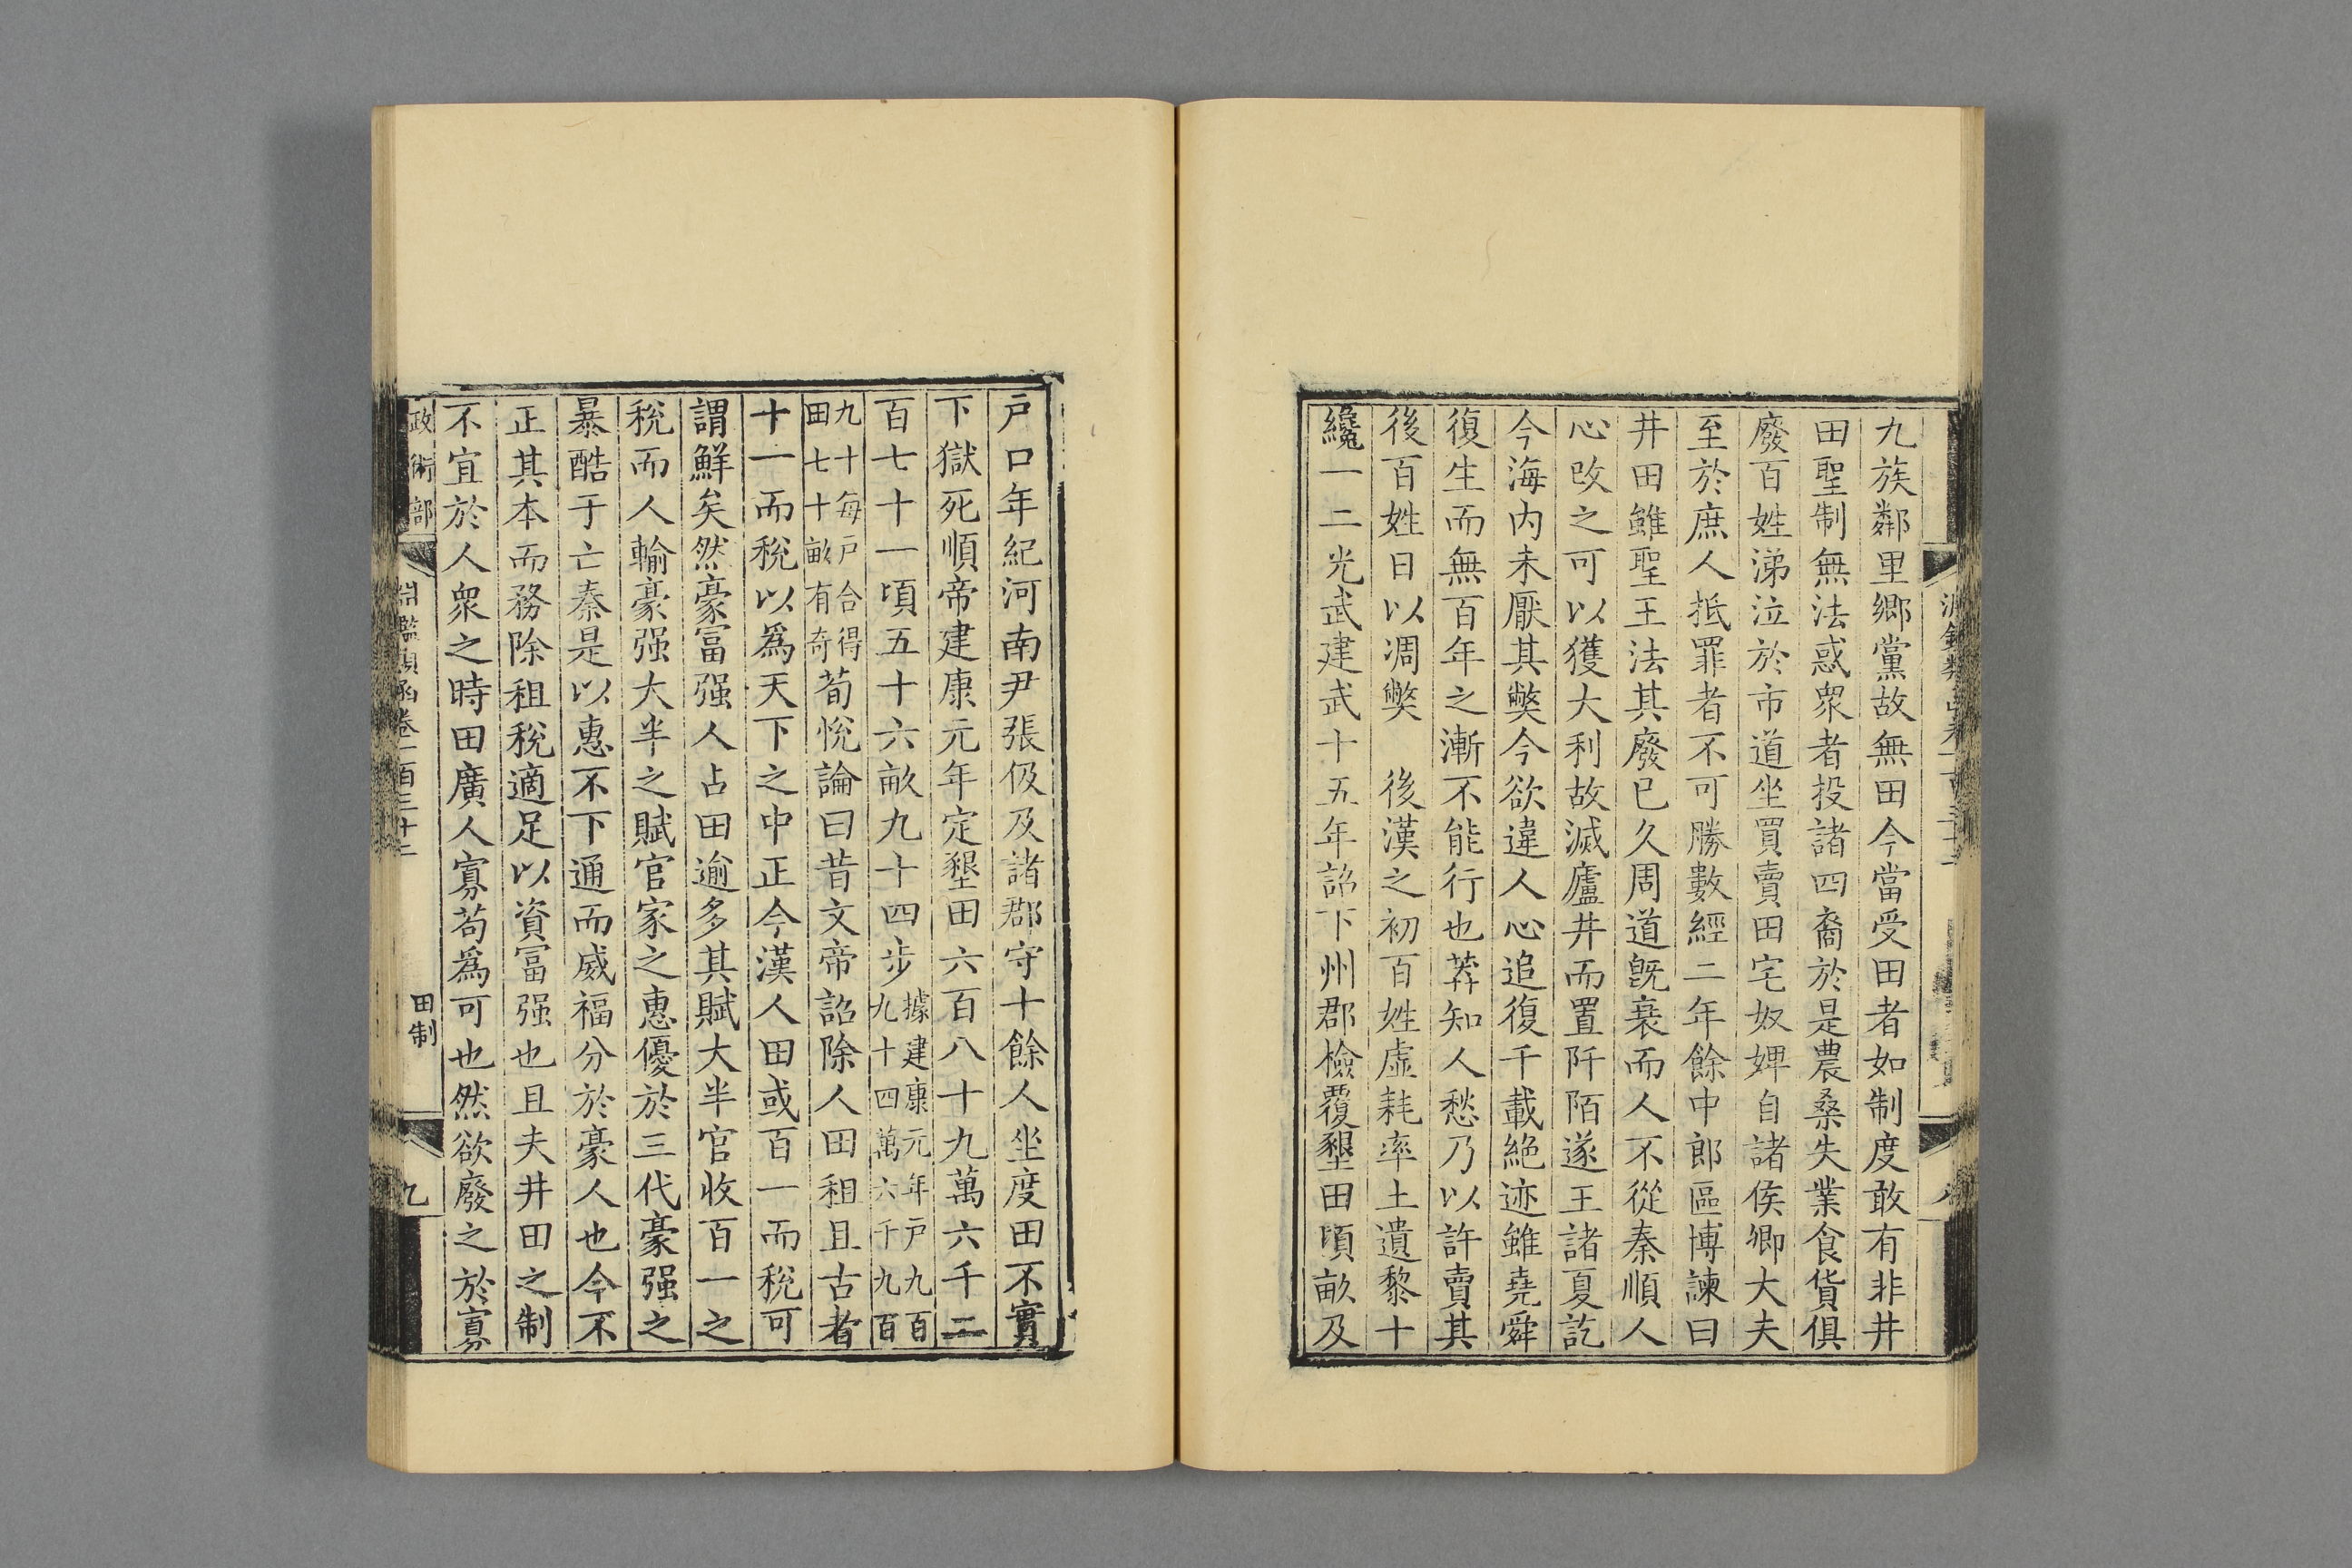 九族鄰里鄉黨故無田今當受田者如制度敢有非井
田聖制無法惑衆者投諸四裔於是農桑失業食貨俱
廢百姓涕泣於市道坐買賣田宅奴婢自諸侯卿大夫
至於庶人抵罪者不可勝數經二年餘中郎區博諫曰
井田雖聖王法其廢已久周道旣衰而人不從秦順人
心改之可以獲大利故滅廬井而置阡陌遂王諸夏訖
今海內未厭其獘今欲違人心追復千載絕迹雖堯舜
復生而無百年之漸不能行也莽知人愁乃以許賣其
後百姓日以凋獘　後漢之初百姓虛耗率土遺黎十
纔一二光武建武十五年詔下州郡檢覆墾田頃畝及
戶口年紀河南尹張伋及諸郡守十餘人坐度田不實
下獄死順帝建康元年定墾田六百八十九萬六千二
百七十一頃五十六畝九十四步據建康元年戶九百九十四萬六千九百
九十每戶合得田七十畝有奇荀悅論曰昔文帝詔除人田租且古者
十一而稅以爲天下之中正今漢人田或百一而稅可
謂鮮矣然豪富强人占田逾多其賦大半官收百一之
稅而人輸豪强大半之賦官家之惠優於三代豪强之
暴酷于亡秦是以惠不下通而威福分於豪人也今不
正其本而務除租稅適足以資富强也且夫井田之制
不宜於人衆之時田廣人寡苟爲可也然欲廢之於寡
政術部　淵鑑類函卷一百三十二　田制　九